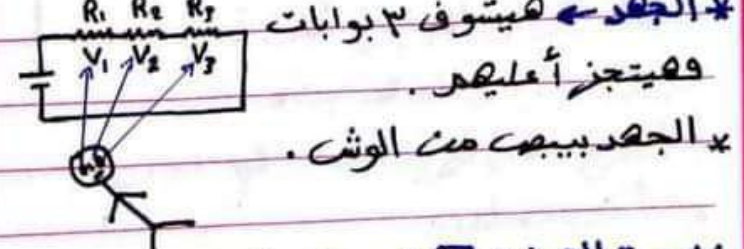 R₁ R₂ R₃
V₁ V₂ V₃
* الجهد ← هيشوف ٣ بوابات
فهيتجزأ عليهم.
* الجهد بيبص من الوش.